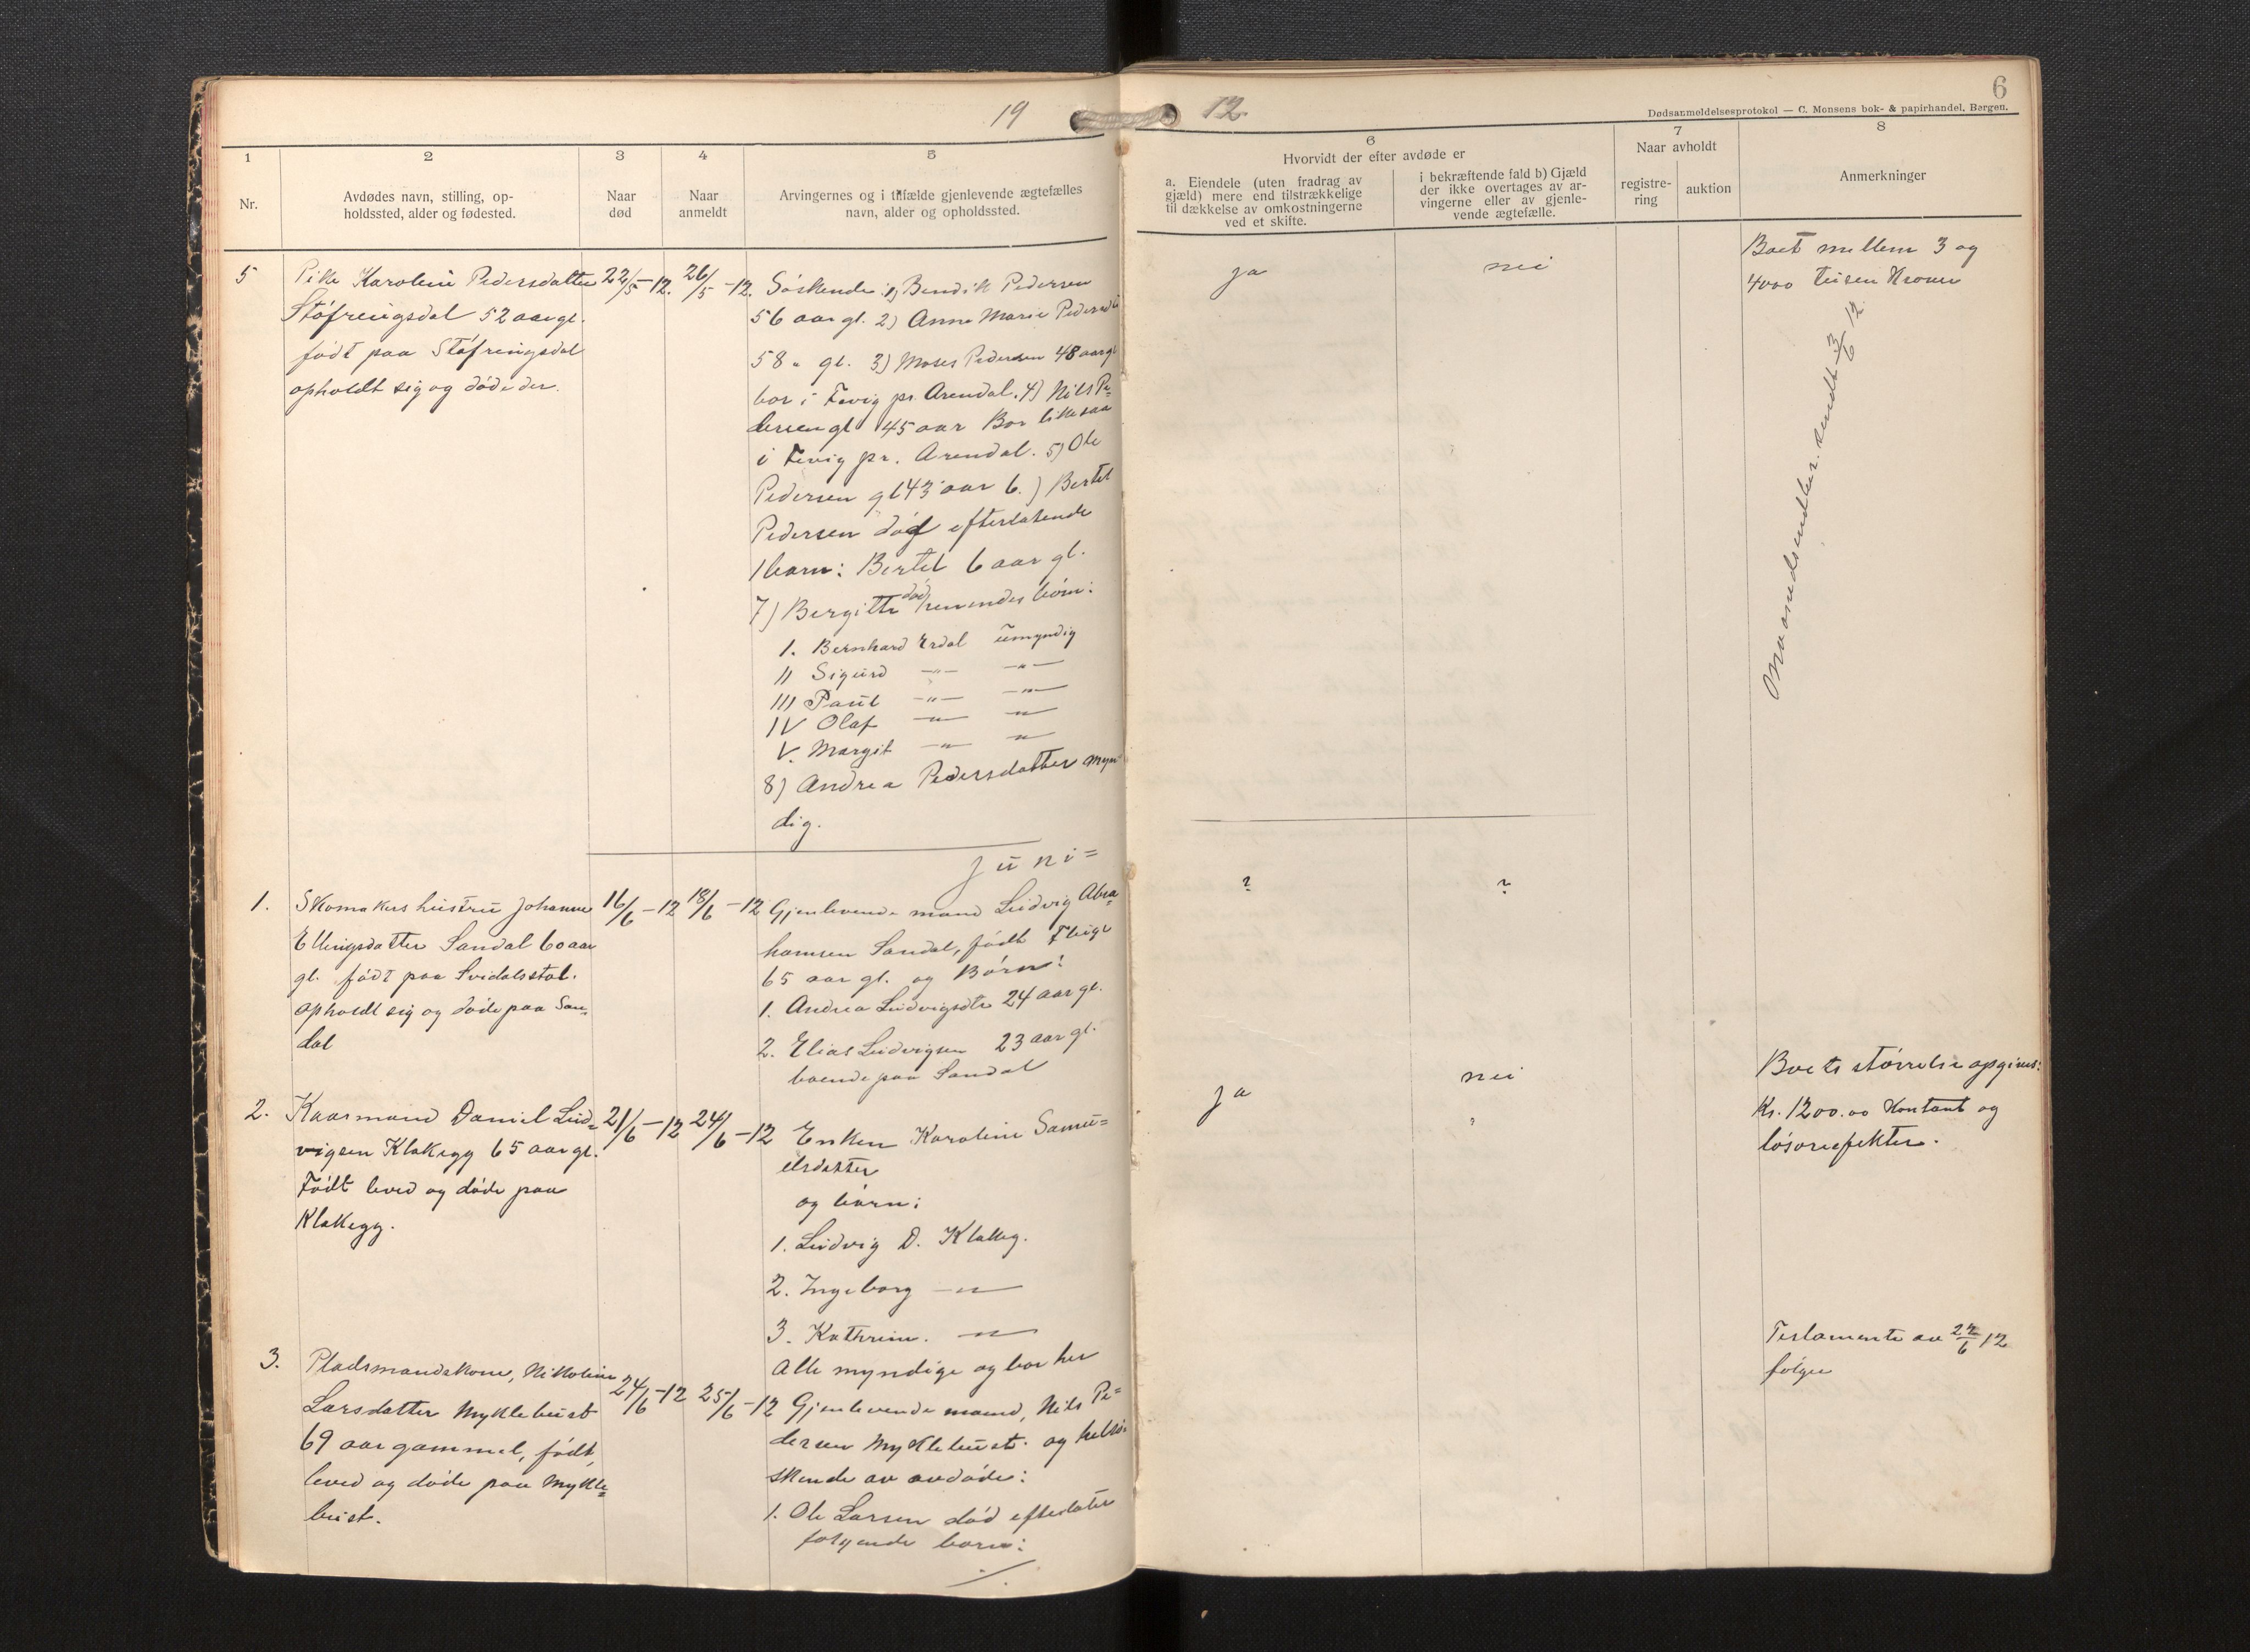 19
12
6
Dødsanmeldelsesprotokol — C. Monsens bok- & papirhandel, Bergen.
1
2
3
4
5
6
7
8
Nr.
Avdødes navn, stilling, op-
holdssted, alder og fødested.
Naar
død
Naar
anmeldt
Arvingernes og i tilfælde gjenlevende ægtefælles
navn, alder og opholdssted.
Hvorvidt der efter avdøde er
a. Eiendele (uten fradrag av
gjæld) mere end tilstrækkelige
til dækkelse av omkostningerne
ved et skifte.
i bekræftende fald b) Gjæld
der ikke overtages av ar-
vingerne eller av gjenle-
vende ægtefælle.
Naar avholdt
registre-
ring
auktion
Anmerkninger
5
Pike Karoline Pedersdatter
Støfringsdal 52 aar gl.
født paa Støfringsdal
opholdt sig og døde der.
22/5-12.
26/5-12.
Søskende: 1) Bendik Pedersen
56 aar gl. 2) Anne Marie Pedersd
58 " gl. 3) Moses Pedersen 48 aar gl
bor i Fevig pr. Arendal. 4) Nils Pe=
dersen gl 45 aar Bor likesaa
i Fevig pr. Arendal. 5) Ole
Pedersen gl 43 aar 6.) Bertel
Pedersen død efterlatende
1 barn: Bertel 6 aar gl.
7) Bergitte død hennendes børn:
1. Bernhard Erdal umyndig
II Sigurd —"— —"—
III Paul —"— —"—
IV Olaf —"— —"—
V. Margit —"— —"—
8) Andrea Pedersdatter myn
dig.
ja
nei
Boet mellem 3 og
4000 tusen Kroner
Maanedsendber. sendt 3/6 12
Juni=
1.
Skomakers hustru Johanne
Ellingsdatter Sandal 60 aar
gl. født paa Svidalsstøl.
opholdt sig og døde paa San=
dal
16/6-12
18/6-12
Gjenlevende mand Ludvig Abra=
hamsen Sandal, født Fluge
65 aar gl. og Børn:
1. Andrea Ludvigsdtr 24 aar gl.
2. Elias Ludvigsen 23 aar gl.
boende paa Sandal
?
?
2.
Kaarmand Daniel Lud=
vigsen Klakegg 65 aar gl.
Født leved og døde paa
Klakegg.
21/6-12
24/6-12
Enken Karoline Samu=
elsdatter
og børn:
1. Ludvig D. Klakeg.
2. Ingeborg —"—
3. Kathrine. —"—
Alle myndige og bor her
ja
nei
Boets størrelse opgives:
Kr. 1200.00 Kontant og
løsøreefekter.
3.
Pladsmandskone, Nikoline
Larsdatter Myklebust
69 aar gammel, født,
leved og døde paa Mykle=
bust.
24/6-12
25/6-12
Gjenlevende mand, Nils Pe=
dersen Myklebust. og helsø
skende av avdøde:
1. Ole Larsen død efterlater
følgende børn:
Testamente av 22/6 12
følger